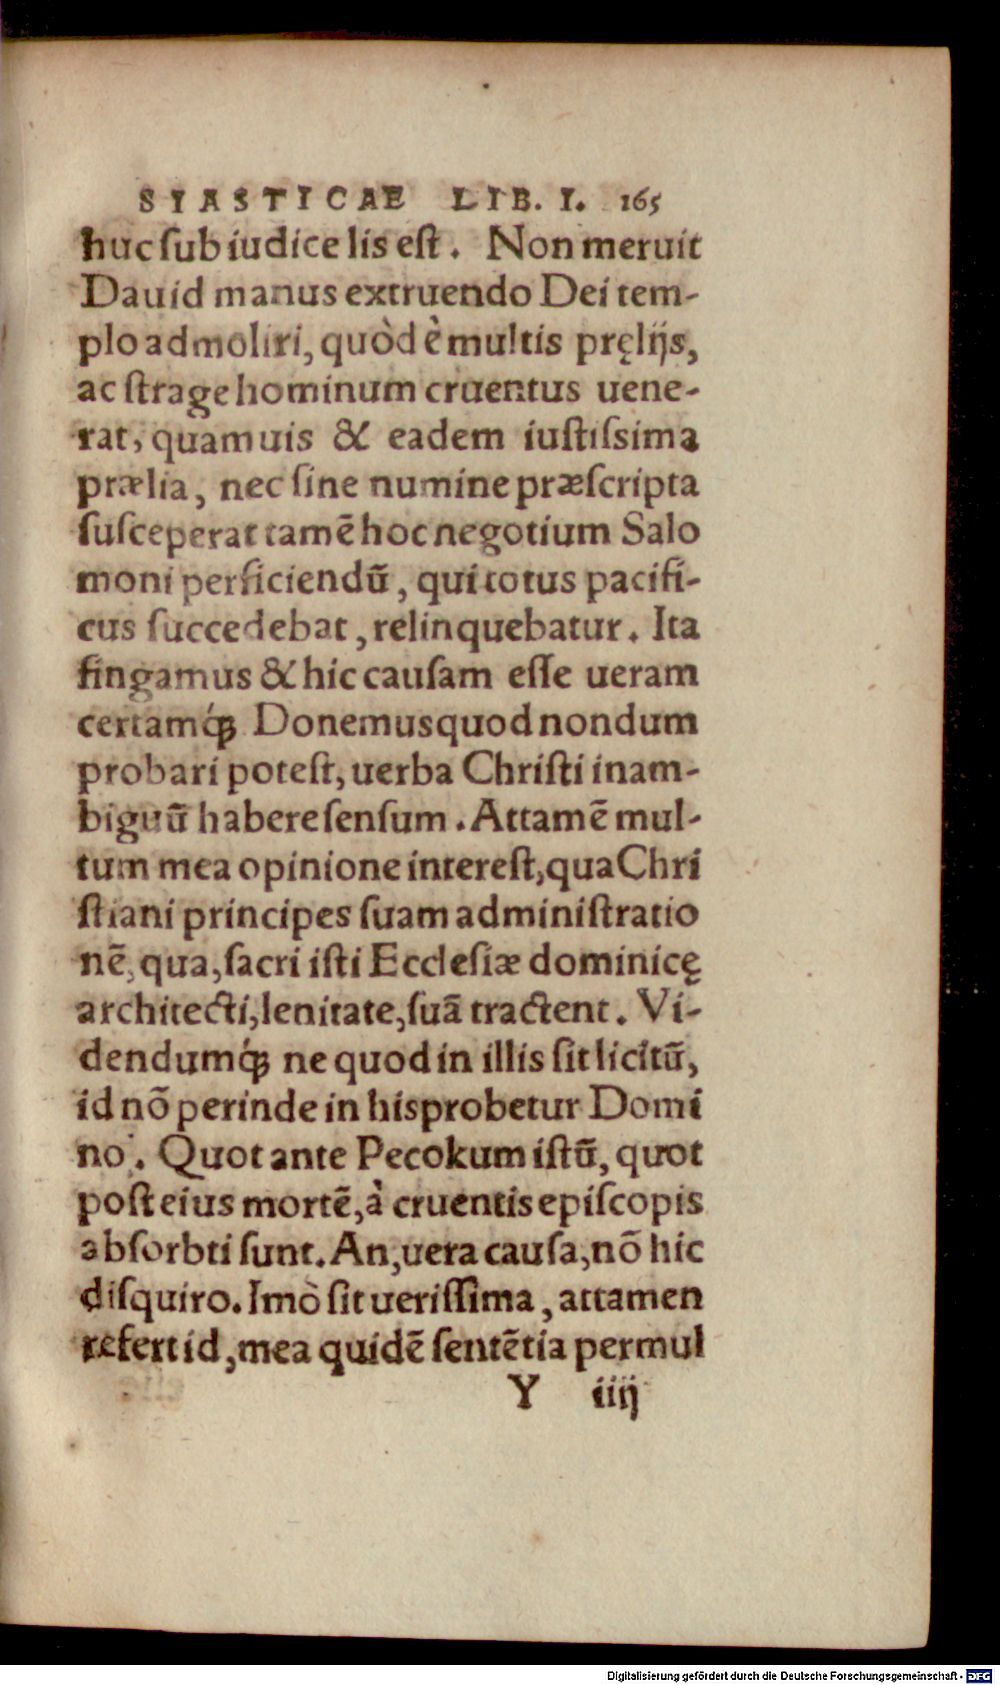 SIASTICAE LIB. I. 165
huc ſub iudice lis eſt. Non meruit
Dauid manus extruendo Dei tem-
plo admoliri, quòd è multis pręlijs,
ac ſtrage hominum cruentus uene-
rat, quamuis & eadem iuſtiſsima
prælia, nec ſine numine præſcripta
ſuſceperat tamē hoc negotium Salo
moni perficiendū, qui totus pacifi-
cus ſuccedebat, relinquebatur. Ita
fingamus & hic cauſam eſſe ueram
certamq́; Donemus quod nondum
probari poteſt, uerba Chriſti inam-
biguū habere ſenſum. Attamē mul-
tum mea opinione intereſt, qua Chri
ſtiani principes ſuam adminiſtratio
nē, qua, ſacri iſti Eccleſiæ dominicę
architecti, lenitate, ſuā tractent. Vi-
dendumq́; ne quod in illis ſit licitū,
id nō perinde in his probetur Domi
no. Quot ante Pecokum iſtū, quot
poſt eius mortē, à cruentis epiſcopis
abſorbti ſunt. An, uera cauſa, nō hic
diſquiro. Imò ſit ueriſſima, attamen
refert id, mea quidē ſentētia permul
Y iiij
Digitalisierung gefördert durch die Deutsche Forschungsgemeinschaft - DFG